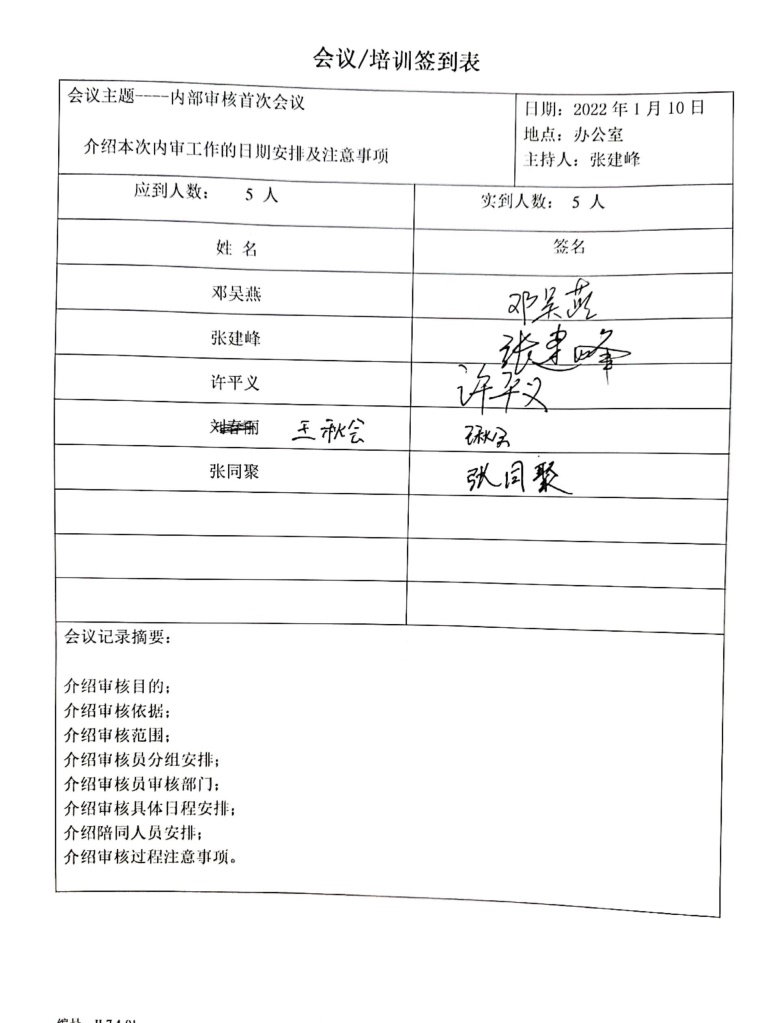 会议/培训签到表
会议主题----内部审核首次会议
介绍本次内审工作的日期安排及注意事项
日期：2022年1月10日
地点：办公室
主持人：张建峰
应到人数： 5 人 实到人数：5 人
姓 名 签名
邓吴燕 邓吴燕
张建峰 张建峰
许平义 许平义
刘春丽 王秋会 王秋会
张同聚 张同聚
会议记录摘要：
介绍审核目的；
介绍审核依据；
介绍审核范围；
介绍审核员分组安排；
介绍审核员审核部门；
介绍审核具体日程安排；
介绍陪同人员安排；
介绍审核过程注意事项。